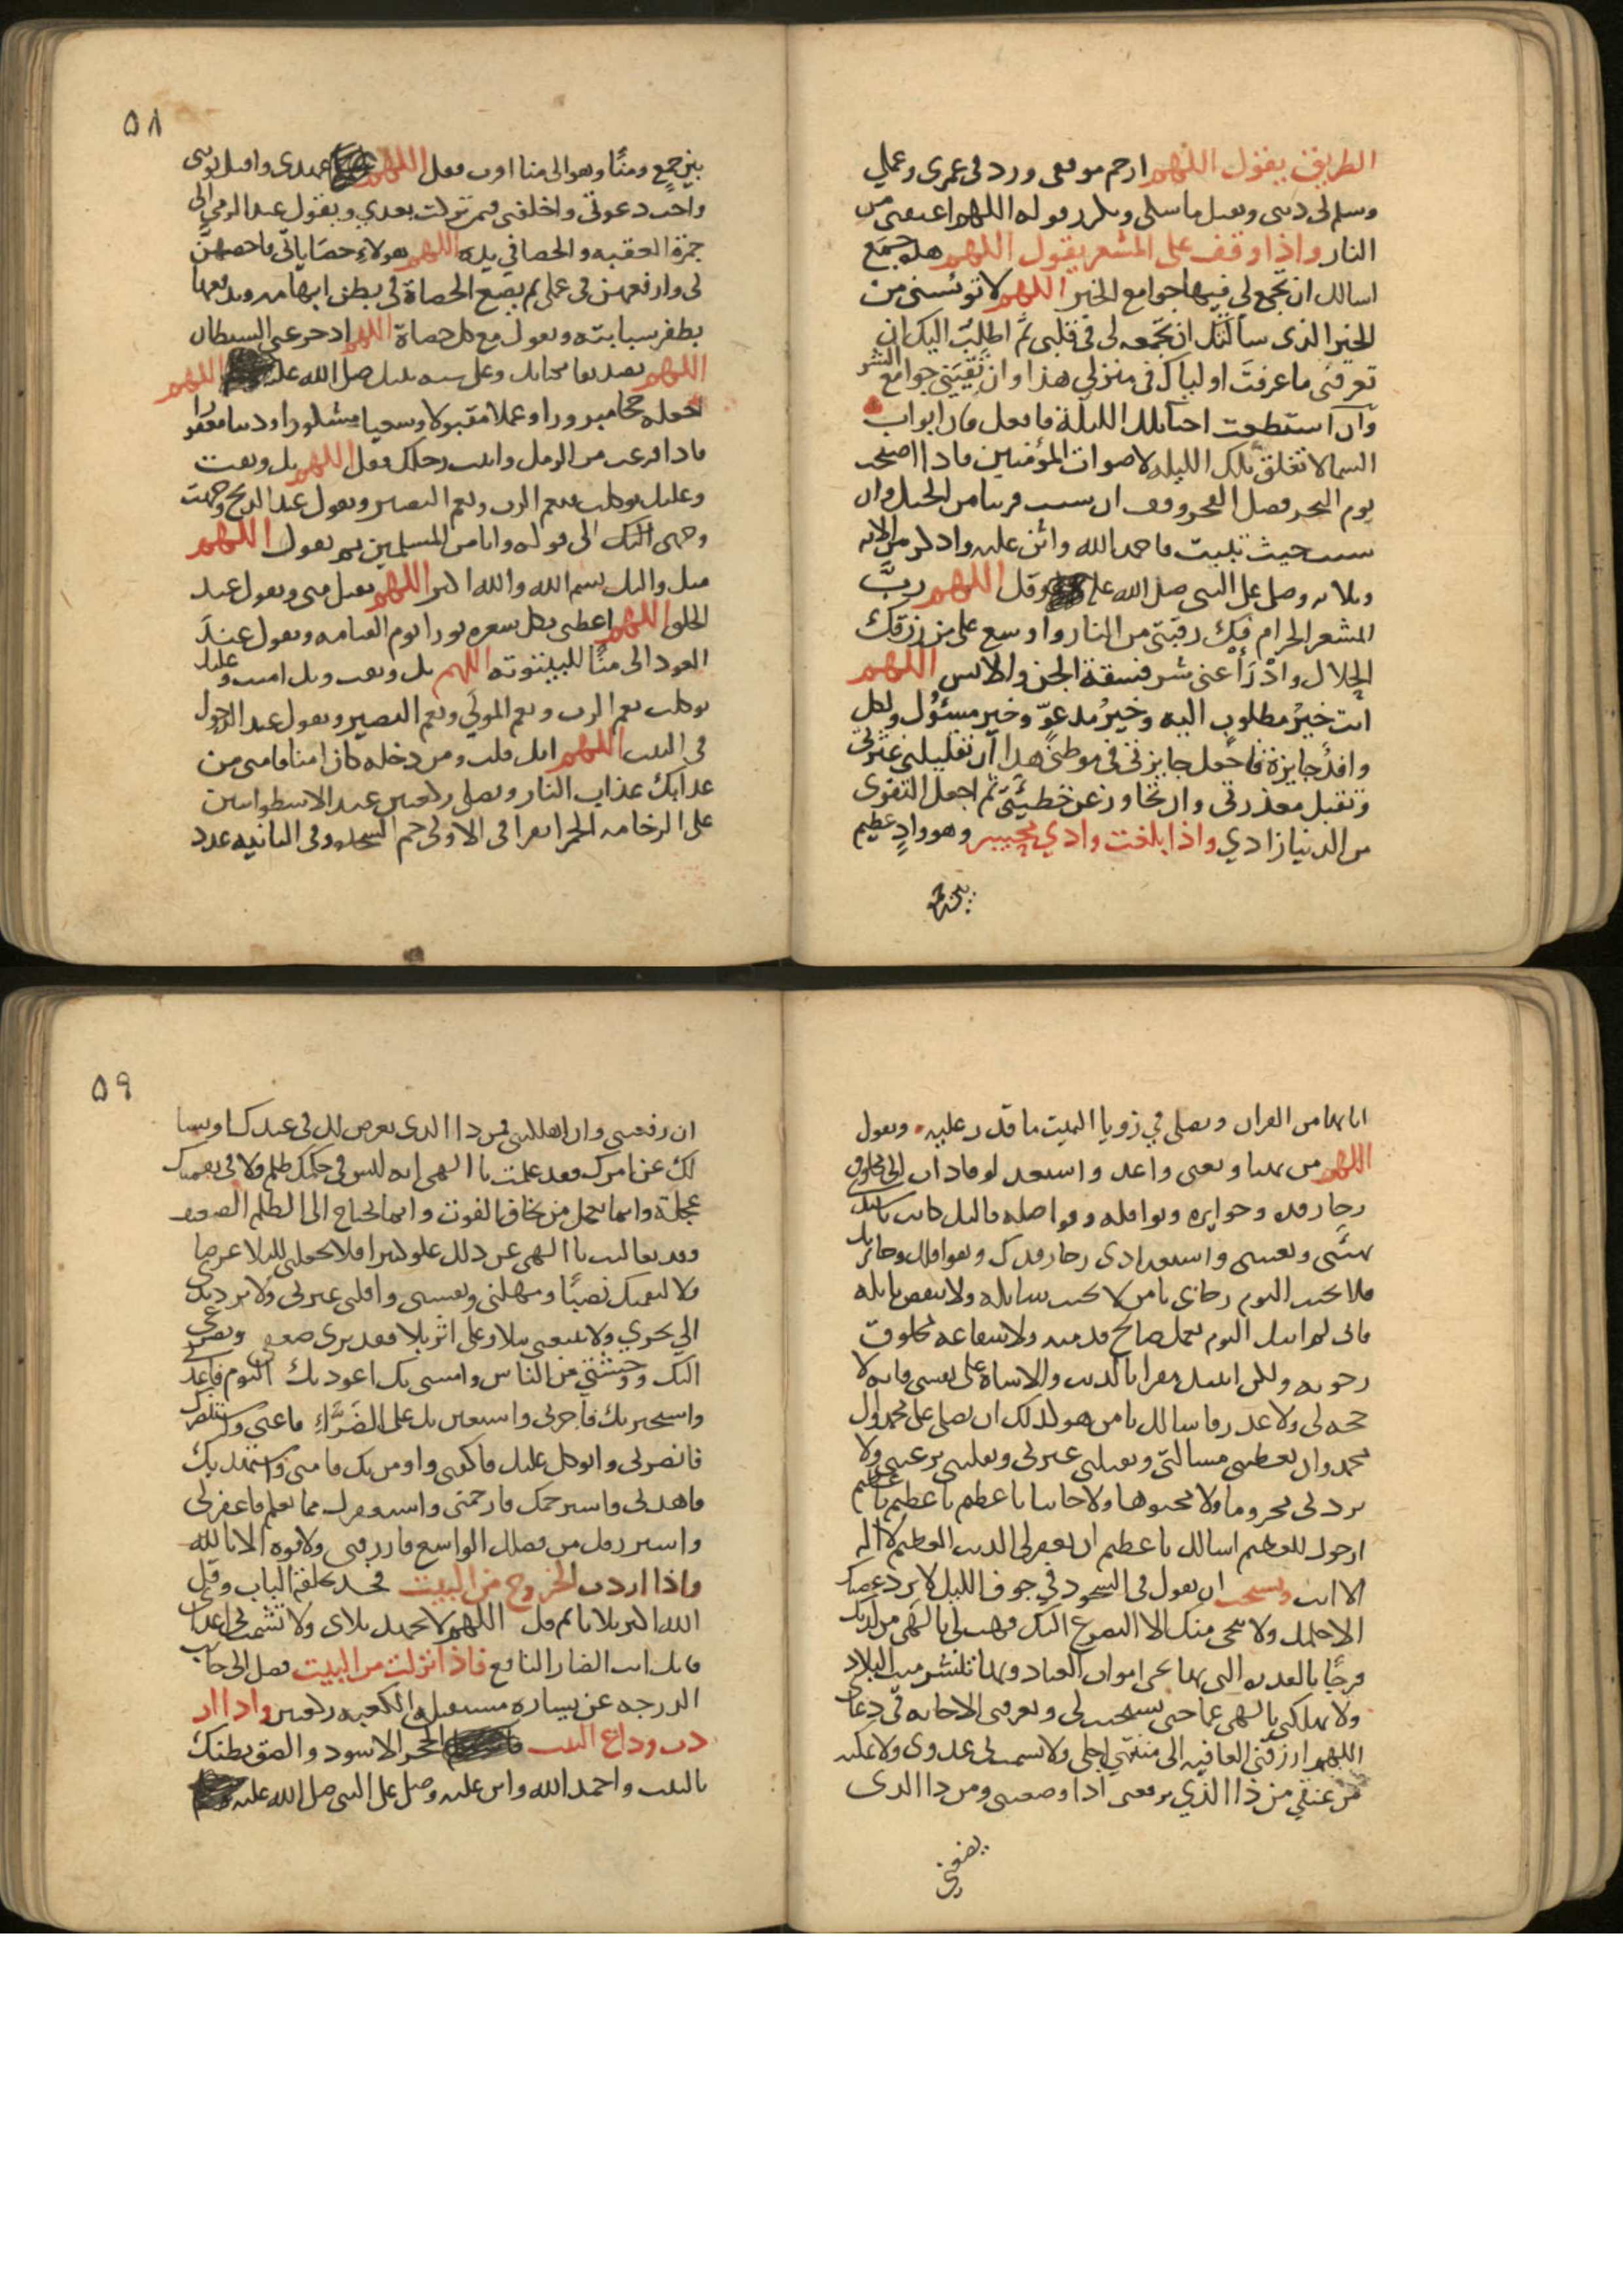 الطريق يقول اللهم ارحم موقفي وزد في عمري وعملي
وسلم لي ديني وتقبل مناسكي ويكرر قوله اللهم اعتقني من
النار واذا وقف على المشعر يقول اللهم هذه جمع
اسالك ان تجمع لي فيها جوامع الخير اللهم لا تؤيسني من
الخير الذي سألتك ان تجمعه لي في قلبي ثم اطلب اليك ان
تعرفني ما عرفت اولياك في منزلي هذا وان تقيني جوامع الشر
وان استطعت احيا تلك الليلة فافعل فان ابواب
السما لا تغلق تلك الليله لاصوات المؤمنين فاذا اصبحت
يوم النحر فصل الفجر وقف ان شيت قريبا من الجبل وان
شيت حيث تبيت فاحمد الله واثن عليه واذكر من الايه
وبلايه وصل على النبي صلى الله عليه وقل اللهم رب
المشعر الحرام فك رقبتي من النار واوسع علي من رزقك
الحلال وادرأ عني شر فسقة الجن والانس اللهم
انت خير مطلوب اليه وخير مدعو وخير مسئول ولكل
وافد جايزة فاجعل جايزتي في موطني هذا ان تقيلني عثرتي
وتقبل معذرتي وان تجاوز عن خطيئتي ثم اجعل التقوى
من الدنيا زادي واذا بلغت وادي محسر وهو واد عظيم
بين جمع
٥٨
بين جمع ومنًا وهو الى منا اقرب فقل اللهم سلم عهدي واقبل توبتي
واجب دعوتي واخلفني فيمن تركت بعدي ويقول عند الرمي الى
جمرة العقبه والحصا في يده اللهم هولاء حصياتي فاحصهن
لي وارفعهن في عملي ثم يضع الحصاة في بطن ابهامه ويدفعها
بظفر سبابته ويقول مع كل حصاة اللهم ادحر عني الشيطان
اللهم تصديقا بكتابك وعلى سنه نبيك صلى الله عليه اللهم
اجعله حجا مبرورا وعملا مقبولا وسعيا مشكورا وذنبا مغفورا
فاذا فرغت من الرمل واتيت رحلك فقل اللهم بك وثقت
وعليك توكلت فنعم الرب ونعم النصير ويقول عند الذبح وجهت
وجهي اليك الى قوله وانا من المسلمين ثم يقول اللهم
منك والیك بسم الله والله اكبر اللهم تقبل مني ويقول عند
الحلق اللهم اعطني بكل شعره نورا يوم القيامه ويقول عند
العود الى منًا للبيتوته اللهم بك وثقت وبك امنت وعليك
توكلت نعم الرب ونعم المولى ونعم النصير ويقول عند الدخول
في البيت اللهم انك قلت ومن دخله كان امنا فامني من
عذابك عذاب النار ويصلي ركعتين عند الاسطوانتين
على الرخامه الحمرا يقرا في الاولى حم السجده وفي الثانيه عدد
اياتها من القران ويصلي في زوايا البيت ما قدر عليه ويقول
اللهم من تهيا وتعبى واعد واستعد لوفادة الى مخلوق
رجا رفده وجوايزه ونوافله وفواضله فاليك كانت يا سيدي
تهيئتي وتعبيتي واستعدادي رجا رفدك ونوافلك وجايزتك
فلا تخيب اليوم رجائي يا من لا يخيب سايله ولا ينقص نايله
فاني لم اتيك اليوم بعمل صالح قدمته ولا شفاعه مخلوق
رجوته ولكن اتيتك مقرا بالذنب والاساة على نفسي فانه لا
حجه لي ولا عذر فاسالك يا من هو كذلك ان تصلي على محمد وال
محمد وان تعطيني مسالتي وتقيلني عثرتي وتقلبني برغبتي ولا
تردني محروما ولا مجبوها ولا خايبا يا عظيم يا عظيم يا عظيم
ارجوك للعظيم اسالك يا عظيم ان تغفر لي الذنب العظيم لا اله
الا انت ويستحب ان يقول في السجود في جوف الليل لا يرد غضبك
الا حلمك ولا ينجي منك الا التضرع اليك فهب لي يا الهي من لدنك
فرجًا بالقدره التي بها تحيي اموات العباد وبها تنشر ميت البلاد
ولا تهلكني يا الهي غما حتى تستجيب لي وتعرفني الاجابه في دعاي
اللهم ارزقني العافيه الى منتهى اجلي ولا تشمت بي عدوي ولا تمكنه
من عنقي من ذا الذي يرفعني اذا وضعتني ومن ذا الذي
يضعني
٥٩
ان رفعتني وان اهلكتني فمن ذا الذي يعرض لك في عبدك او يسا
لك عن امرك فقد علمت يا الهي انه ليس في حكمك ظلم ولا في نقمتك
عجلة وانما يعجل من يخاف الفوت وانما يحتاج الى الظلم الضعيف
وقد تعاليت يا الهي عن ذلك علوا كبيرا فلا تجعلني للبلا غرضا
ولا لنقمتك نصبًا ومهلني ونفسني واقلني عثرتي ولا ترد يدي
الى نحري ولا تتبعني ببلا وعلى اثر بلا فقد ترى ضعفي وتضرعي
اليك ووحشتي من الناس وانسي بك اعوذ بك اليوم فاعذني
واستجير بك فاجرني واستعين بك على الضراء فاعني واستنصرك
فانصرني واتوكل عليك فاكفني واومن بك فامني واستهديك
فاهدني واسترحمك فارحمني واستغفرك مما تعلم فاغفر لي
واسترزقك من فضلك الواسع فارزقني ولا قوه الا بالله
واذا اردت الخروج من البيت فخذ بحلقة الباب وقل
الله اكبر ثلاثا ثم قل اللهم لا تجهد بلاي ولا تشمت بي اعداي
فانك انت الضار النافع فاذا نزلت من البيت فصل الى جانب
الدرجه عن يساره مستقبل الكعبه ركعتين واذا ار
دت وداع البيت الحجر الاسود والصق بطنك
بالبيت واحمد الله واثن عليه وصل على النبي صلى الله عليه